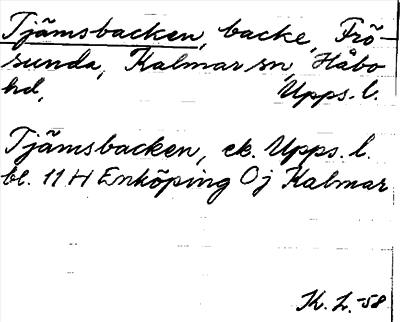 Tjämsbacken, backe, Frö-
sunda, Kalmar sn, Håbo
hd, Upps. l.
Tjämsbacken, ek. Upps. l.
bl. 11 H Enköping 0j Kalmar
K. L. -58